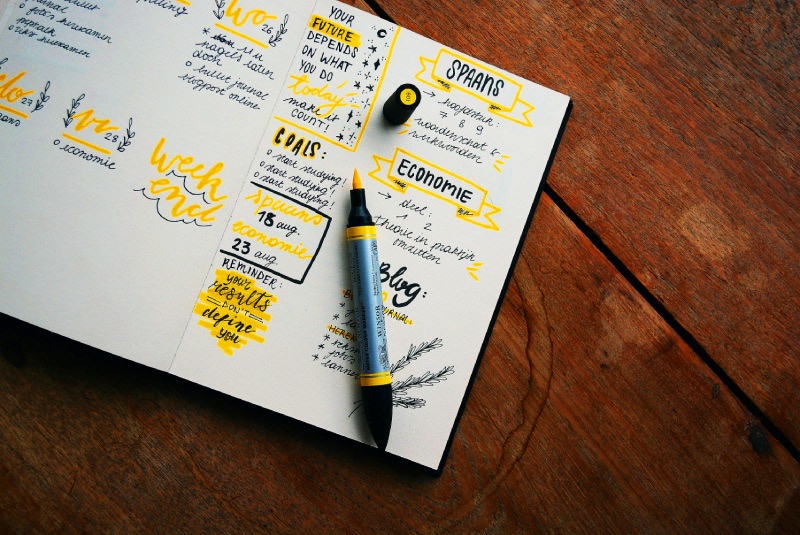 foto's herkennen
wo 26
nagels laten
doen
o bullet journal
blogpost online
27
28
o economie
week
end
YOUR
FUTURE
DEPENDS
ON WHAT
YOU DO
today
make it
COUNT!
GOALS:
o start studying!
o start studying!
o start studying!
spaans
18 aug.
economie
23 aug.
REMINDER:
your
results
DON'T
define
you
SPAANS
→ hoofdstuk:
7 & 9
woordenschat &
werkwoorden
ECONOMIE
→ deel:
1 2
theorie in praktijk
omzetten
Blog:
WINSOR